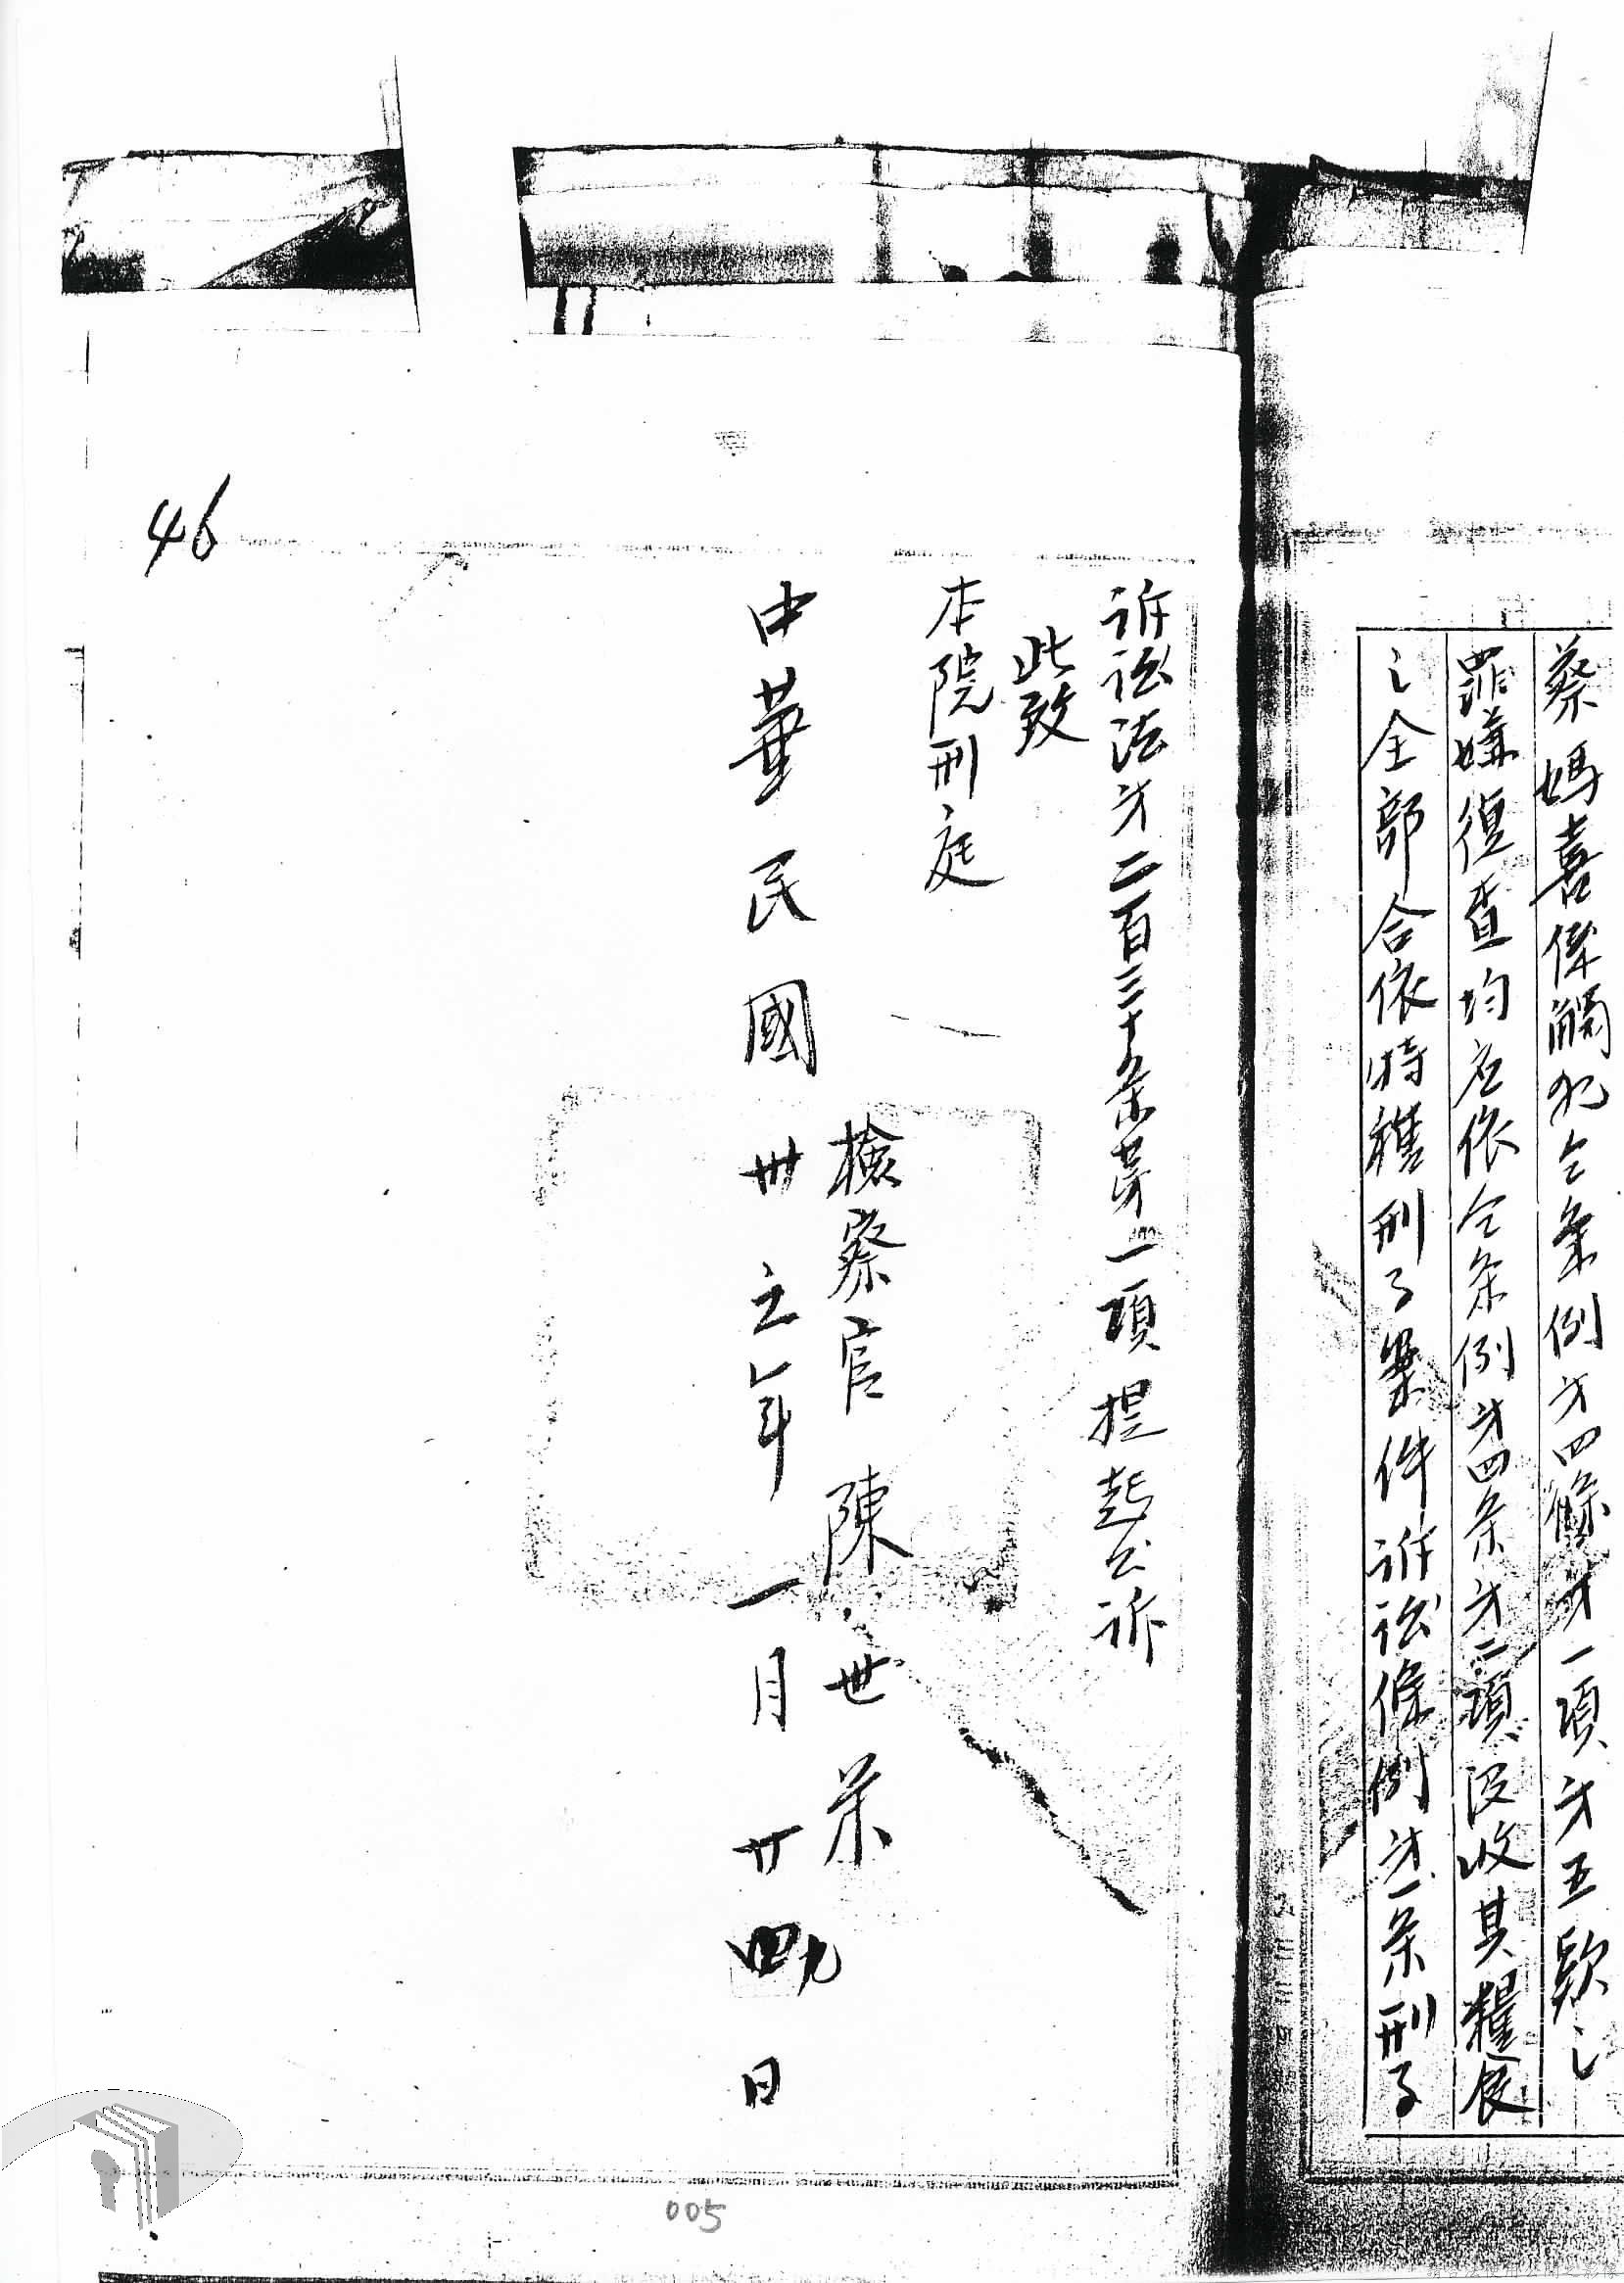 蔡媽喜係觸犯仝条例才四條才一項才五款之
罪嫌復查均应依仝条例才四条才二項没收其糧食
之全部合依特種刑事案件訴訟條例才一条刑事
訴訟法才二百三十条第一項提起公訴
此致
本院刑庭
檢察官 陳世榮
中華民國卅五年一月廿四日
46
005